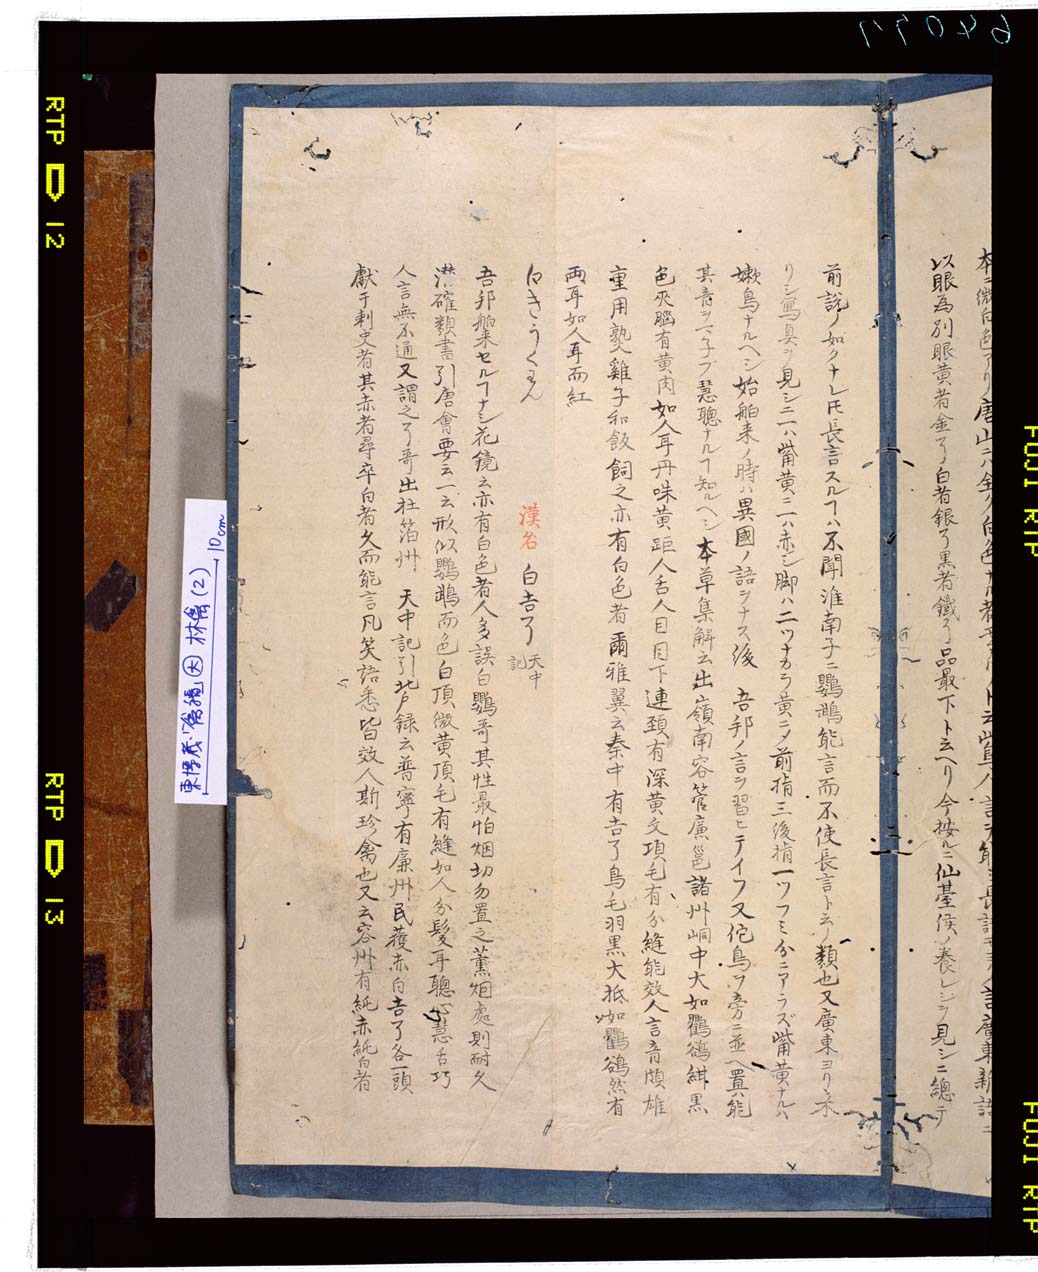 以眼為別眼黄者金了白者銀了黒者鐵了品最下ト云ヘリ今按ルニ仙臺侯ノ養レシヲ見シニ總テ
前説ノ如クナレ𪜈長言スルヿハ不聞淮南子ニ鸚鵡能言而不使長言ト云ノ類也又廣東ヨリ来
リシ寫真ヲ見シニ一ハ觜黄ニ一ハ赤シ脚ハ二ツナカラ黄ニ〆前指三後指一ツフミ分ニアラズ觜黄ナルハ
嫩鳥ナルヘシ始舶来ノ時ハ異國ノ語ヲナス後 吾邦ノ言ヲ習ヒテイフ又佗鳥ヲ旁ニ並ヘ置ハ能
其音ヲマ子ブ慧聰ナルヿ知ルヘシ 本草集解云出嶺南容管廉邕諸州峒中大如鸜鵒紺黒
色夾腦有黄肉如人耳丹咮黄距人舌人目目下連頚有深黄文頂毛有分縫能效人言音頗雄
重用熟雞子和飯飼之亦有白色者 爾雅翼云秦中有吉了鳥毛羽黒大抵如鸜鵒然有
兩耳如人耳而紅
はきうくわん 漢名 白吉了 天中記
吾邦舶来セルヿナシ花鏡云亦有白色者人多誤白鸚哥其性最怕烟切勿置之薫烟處則耐久
淇確類書引唐會要云一云形似鸚鵡而色白頂微黄頂毛有縫如人分髪耳聰心慧舌巧
人言無不通又謂之了哥出杜箔州 天中記引北戸録云普寧有廉州民獲赤白吉了各一頭
獻于刺史者其赤者尋卒白者久而能言凡笑語悉皆效人斯珍禽也又云容州有純赤純白者
林禽(2)
10cm
64077
RTP 12
RTP 13
FUJI RTP
FUJI RTP